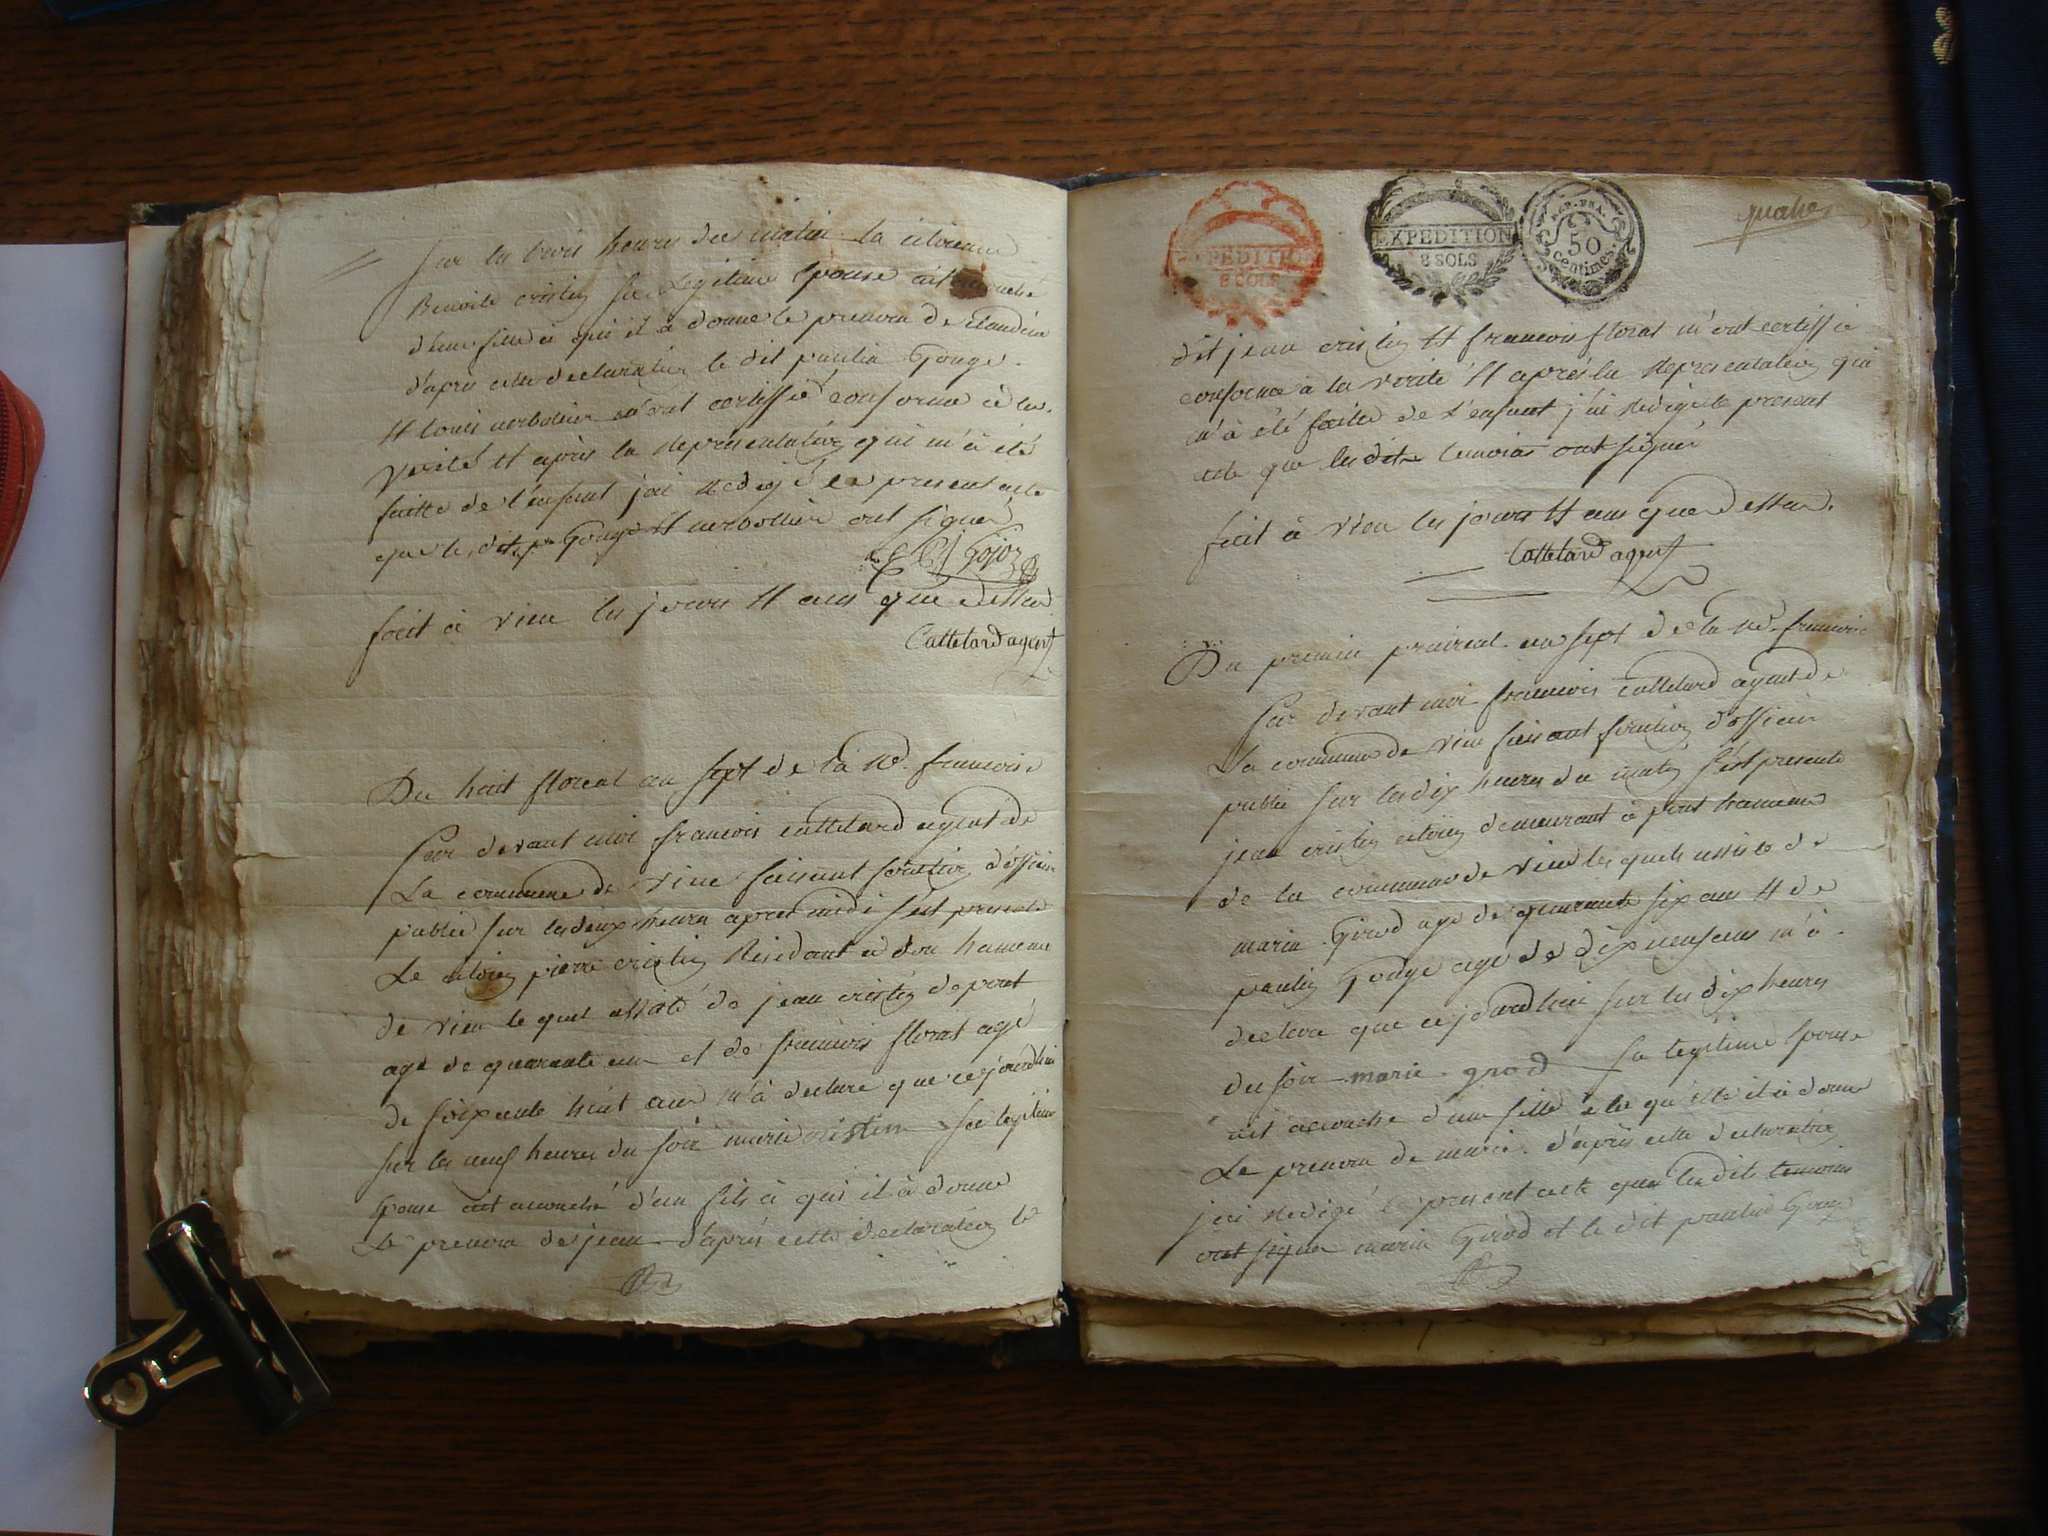 Sur les trois heures du matin la citoienne
Benoite cristin sa legitime Epouse ait accouché
d'une fille à qui il à donné le prenom de claudine
d'après cette declaration le dit paulin Gouge
et louis verbollier m'ont certiffié conforme à la
verité et après la representation qui m'à été
faitte de l'enfant j'ai redigé le present acte
que le dit Gouge et verbollier ont signé
Gojoz
fait à vieu les jours et ans que dessus
Cattelard agent
Du huit floreal an sept de la Rd. francoise
Par devant moi francois cattelard agent de
La commune de vieu faisant fonction d'officier
public sur les deux heures apres midi s'est presenté
Le citoien pierre cristin Residant à don hameau
de vieu le quel assisté de jean cristin de pont
agé de quarante ans et de francois florat agé
de soixante huit ans m'à declaré que cejourdhui
sur les neuf heures du soir marie cristin sa legitime
Epouse ait accouché d'un fils à qui il à donné
Le prenom de jean d'après cette declaration le
EXPEDITION
8 SOLS
EXPEDITION
8 SOLS
REP. FRA.
50
centimes
quatre
dit jean cristin et francois florat m'ont certiffié
conforme à la verité et après la representation qui
m'à été faitte de l'enfant j'ai redigé le present
acte que les dits temoins ont signé
fait à vieu les jours et ans que dessus.
Cattelard agent
Du premier prairial an sept de la Rd. francoise
Par devant moi francois cattelard agent de
La commune de vieu faisant fonction d'officier
public sur les dix heures du matin s'est presenté
jean cristin citoien demeurant à pont hameau
de la commune de vieu les quels assisté de
marin Girod agé de quarante six ans et de
paulin Gouge agé de dix neuf ans m'à
declaré que cejourdhui sur les dix heures
du soir marie girod sa legitime Epouse
ait accouché d'une fille à la quelle il à donné
Le prenom de marie. d'après cette declaration
j'ai redigé le present acte que les dits temoins
ont signé marin Girod et le dit paulin Gouge